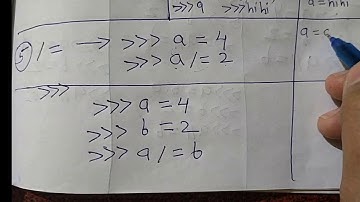 >>> a >>> hihi a = hihi
⑤ /= → >>> a = 4 a = a
>>> a /= 2
>>>>
>>> a = 4
>>> b = 2
>>> a /= b